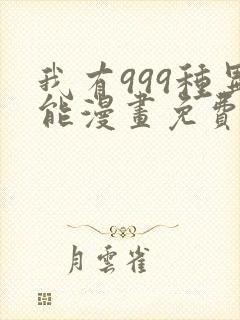 我有999種異
能漫畫免費
月雲雀